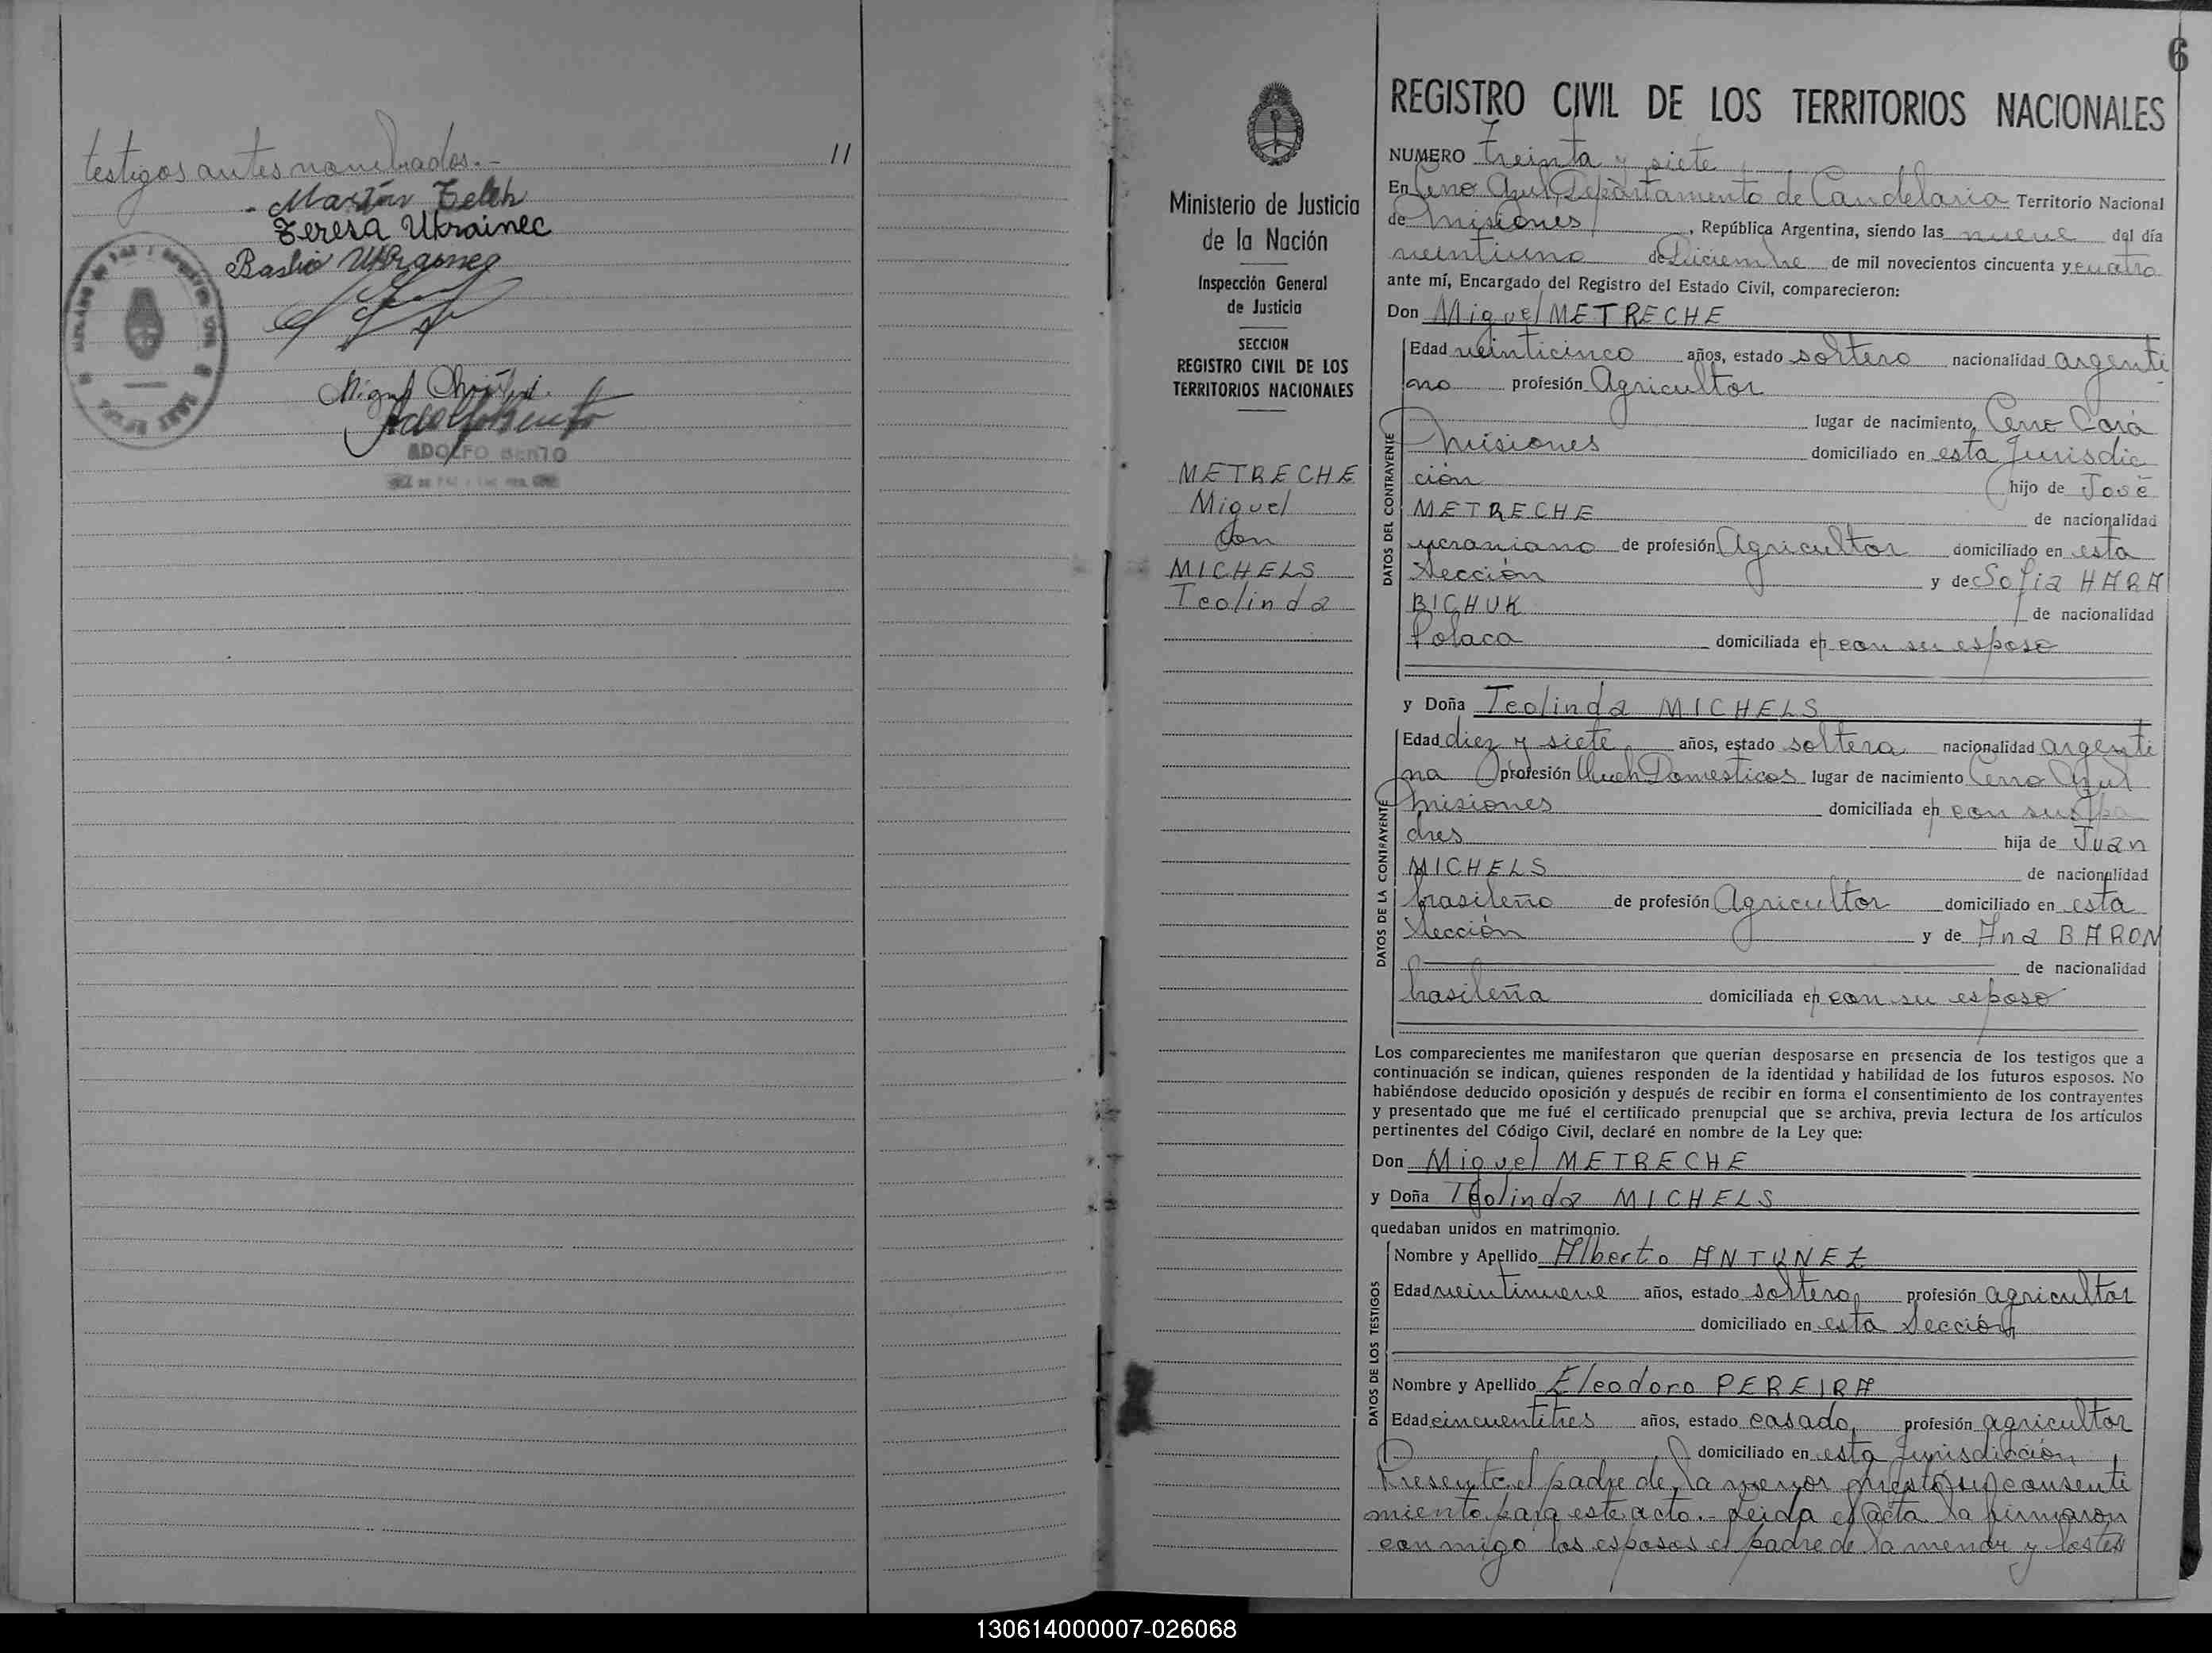 testigos antes nombrados.-
11
Teresa Ukrainec
ADOLFO BENTO
6
Ministerio de Justicia
de la Nación
Inspección General
de Justicia
SECCION
REGISTRO CIVIL DE LOS
TERRITORIOS NACIONALES
METRECHE
Miguel
con
MICHELS
Teolinda
REGISTRO CIVIL DE LOS TERRITORIOS NACIONALES
NUMERO treinta y siete
En Cerro Azul, Departamento de Candelaria Territorio Nacional
de Misiones, República Argentina, siendo las nueve del día
veintiuno de Diciembre de mil novecientos cincuenta y cuatro
ante mí, Encargado del Registro del Estado Civil, comparecieron:
Don Miguel METRECHE
DATOS DEL CONTRAYENTE
Edad veinticinco años, estado soltero nacionalidad argenti
no profesión Agricultor
lugar de nacimiento Cerro Corá
Misiones domiciliado en esta Jurisdic
ción hijo de José
METRECHE de nacionalidad
ucraniano de profesión Agricultor domiciliado en esta
Sección y de Sofia HARA
BICHUK de nacionalidad
Polaca domiciliada en con su esposo
y Doña Teolinda MICHELS
DATOS DE LA CONTRAYENTE
Edad diez y siete años, estado soltera nacionalidad argenti
na profesión Queh Domesticos lugar de nacimiento Cerro Azul
Misiones domiciliada en con sus pa
dres hija de Juan
MICHELS de nacionalidad
brasileño de profesión Agricultor domiciliado en esta
Sección y de Ana BARON
de nacionalidad
brasileña domiciliada en con su esposo
Los comparecientes me manifestaron que querían desposarse en presencia de los testigos que a
continuación se indican, quienes responden de la identidad y habilidad de los futuros esposos. No
habiéndose deducido oposición y después de recibir en forma el consentimiento de los contrayentes
y presentado que me fué el certificado prenupcial que se archiva, previa lectura de los artículos
pertinentes del Código Civil, declaré en nombre de la Ley que:
Don Miguel METRECHE
y Doña Teolinda MICHELS
quedaban unidos en matrimonio.
DATOS DE LOS TESTIGOS
Nombre y Apellido Alberto ANTUNEZ
Edad veintinueve años, estado soltero profesión agricultor
domiciliado en esta Sección
Nombre y Apellido Eleodoro PEREIRA
Edad cincuentitres años, estado casado, profesión agricultor
domiciliado en esta Jurisdicción
Presente el padre de la menor prestó su consenti
miento para este acto.- Leida el acta la firmaron
conmigo los esposos el padre de la menor y los tes
130614000007-026068